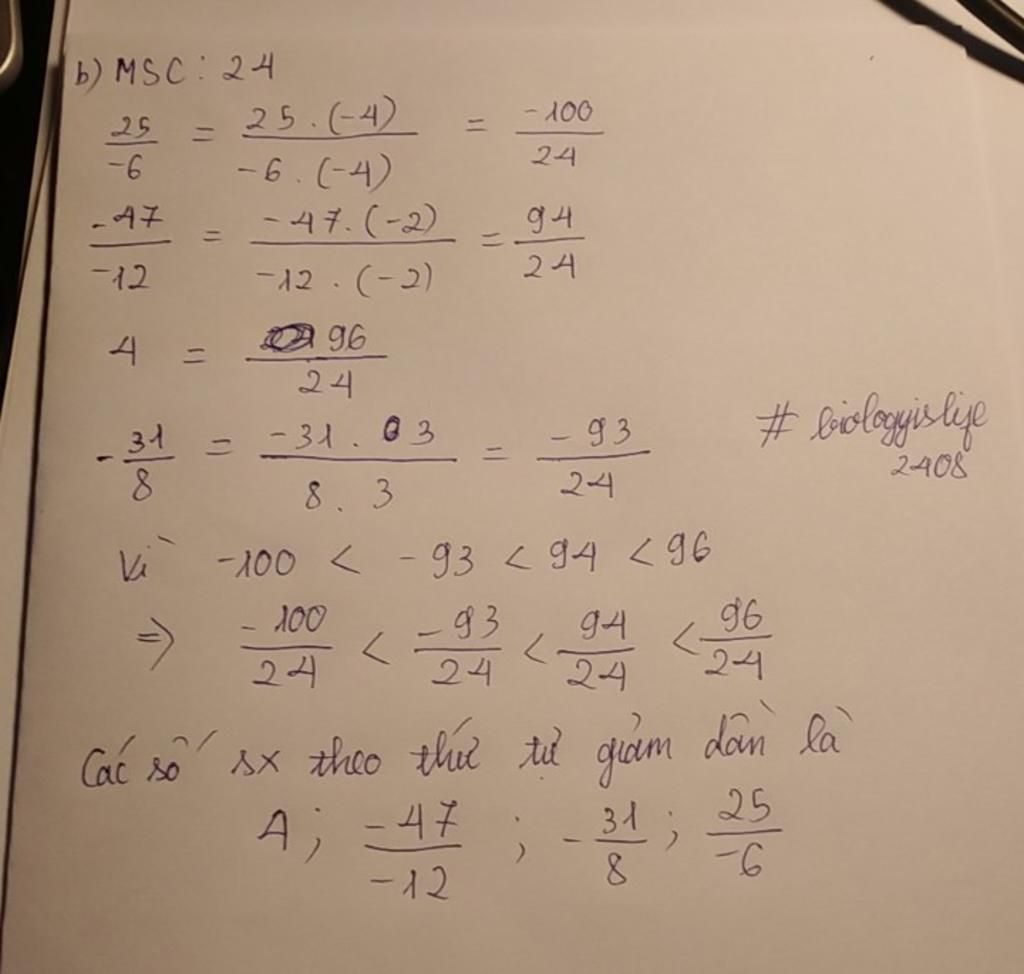 b) MSC: 24
25/-6 = 25.(-4)/-6.(-4) = -100/24
-47/-12 = -47.(-2)/-12.(-2) = 94/24
4 = 96/24
-31/8 = -31.3/8.3 = -93/24
# biologyislife
2408
Vì -100 < -93 < 94 < 96
=> -100/24 < -93/24 < 94/24 < 96/24
Các số sx theo thứ tự giảm dần là
4; -47/-12; -31/8; 25/-6